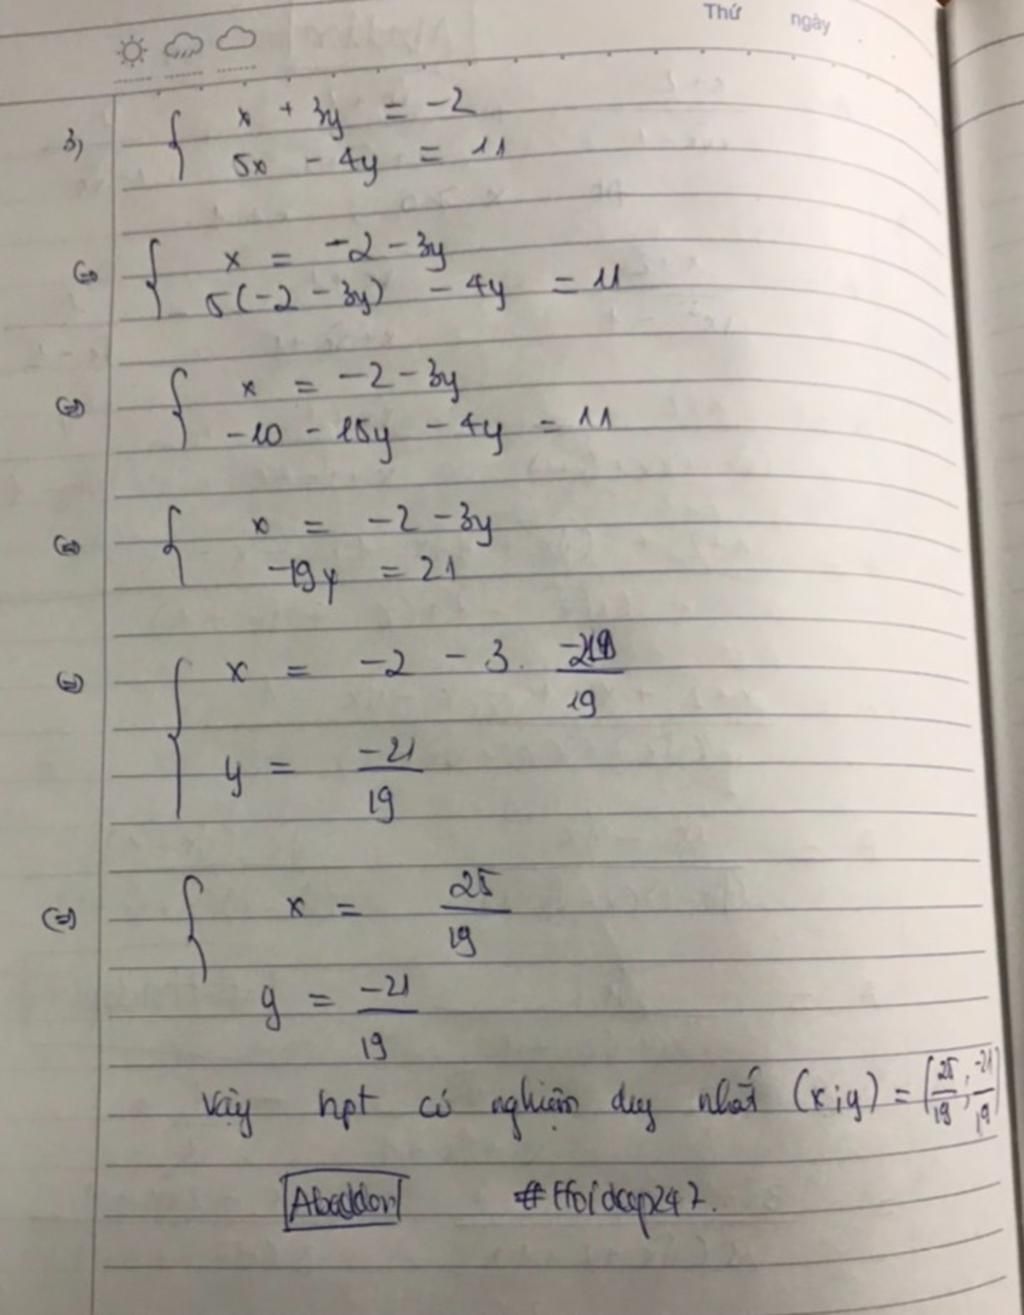 Thứ ngày
3) { x + 3y = -2
5x - 4y = 11
⇔ { x = -2 - 3y
5(-2 - 3y) - 4y = 11
⇔ { x = -2 - 3y
-10 - 15y - 4y = 11
⇔ { x = -2 - 3y
-19y = 21
⇔ { x = -2 - 3. -21/19
y = -21/19
⇔ { x = 25/19
y = -21/19
Vậy hpt có nghiệm duy nhất (x;y) = (25/19; -21/19)
Abaddon #Hoidap247.